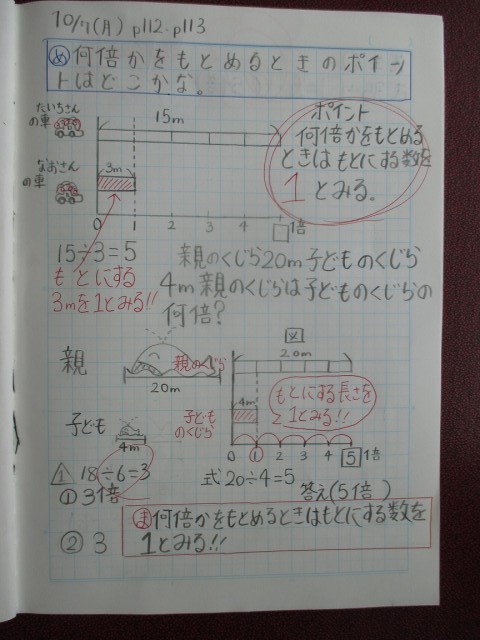 10/7(月) p112-p113
め 何倍かをもとめるときのポイン
トはどこかな。
たいちさん
の車
15m
ポイント
何倍かをもとめる
ときはもとにする数を
1とみる。
なおさん
の車
3m
0 1 2 3 4 □倍
15÷3=5
もとにする
3mを1とみる!!
親のくじら20m子どものくじら
4m親のくじらは子どものくじらの
何倍?
親
親のくじら
20m
図
20m
もとにする長さを
1とみる!!
子ども
4m
子ども
のくじら
4m
0 1 2 3 4 5倍
1 18÷6=3
① 3倍
式20÷4=5
答え(5倍)
② 3
ま何倍かをもとめるときはもとにする数を
1とみる!!